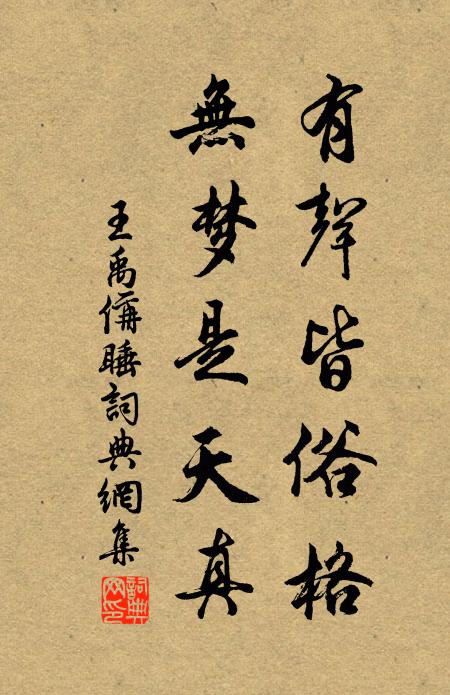 有聲皆俗格
無梦是天真
王禹偁睡詞典網集
詞典網印